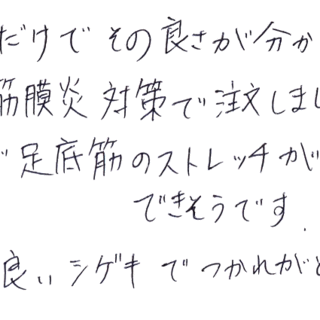 だけでその良さが分か
筋膜炎対策で注文しまし
足底筋のストレッチが
できそうです.
良いシゲキでつかれがと